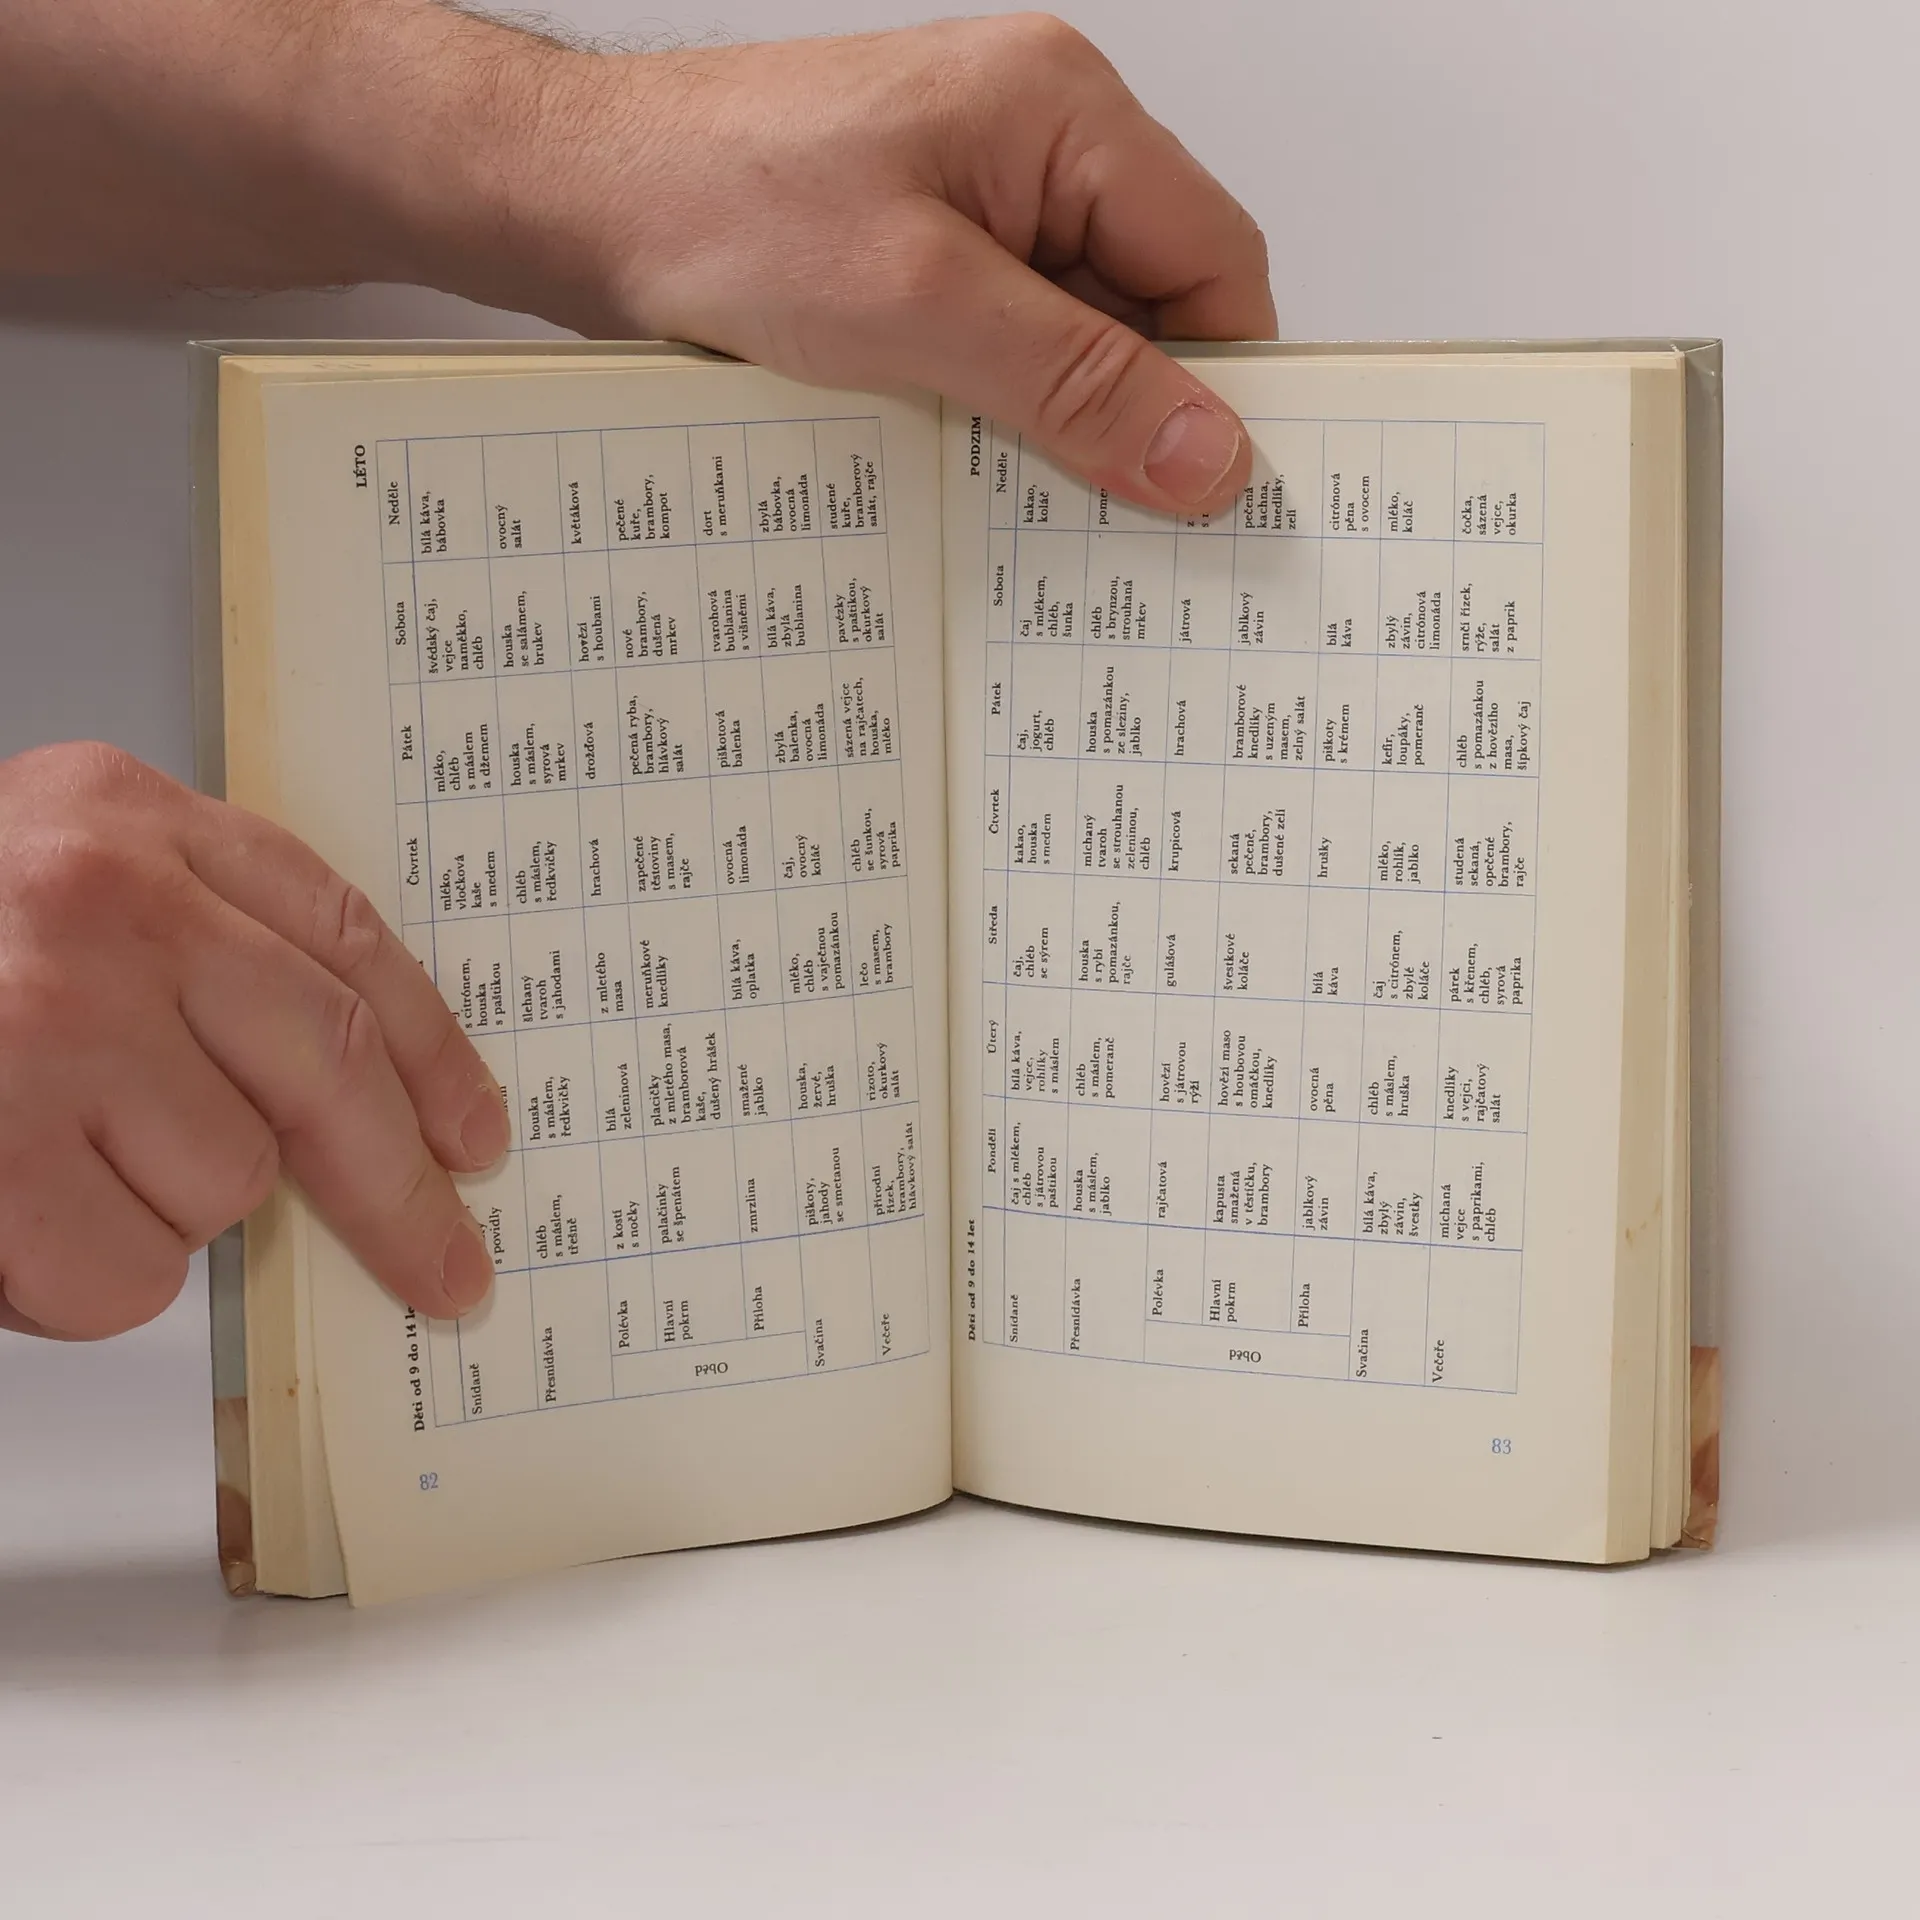 LÉTO
Děti od 9 do 14 le
Čtvrtek
Pátek
Sobota
Neděle
Snídaně
s povidly
s citrónem,
houska
s paštikou
mléko,
vločková
kaše
s medem
mléko,
chléb
s máslem
a džemem
švédský čaj,
vejce
naměkko,
chléb
bílá káva,
bábovka
Přesnídávka
chléb
s máslem,
třešně
houska
s máslem,
ředkvičky
šlehaný
tvaroh
s jahodami
chléb
s máslem,
ředkvičky
houska
s máslem,
syrová
mrkev
houska
se salámem,
brukev
ovocný
salát
Oběd
Polévka
z kostí
s nočky
bílá
zeleninová
z mletého
masa
hrachová
drožďová
hovězí
s houbami
květáková
Hlavní
pokrm
palačinky
se špenátem
placičky
z mletého masa,
bramborová
kaše,
dušený hrášek
meruňkové
knedlíky
zapečené
těstoviny
s masem,
rajče
pečená ryba,
brambory,
hlávkový
salát
nové
brambory,
dušená
mrkev
pečené
kuře,
brambory,
kompot
Příloha
zmrzlina
smažené
jablko
bílá káva,
oplatka
ovocná
limonáda
piškotová
balenka
tvarohová
bublanina
s višněmi
dort
s meruňkami
Svačina
piškoty,
jahody
se smetanou
houska,
žervé,
hruška
mléko,
chléb
s vaječnou
pomazánkou
čaj,
ovocný
koláč
zbylá
balenka,
ovocná
limonáda
bílá káva,
zbylá
bublanina
zbylá
bábovka,
ovocná
limonáda
Večeře
přírodní
řízek,
brambory,
hlávkový salát
rizoto,
okurkový
salát
lečo
s masem,
brambory
chléb
se šunkou,
syrová
paprika
sázená vejce
na rajčatech,
houska,
mléko
pavézky
s paštikou,
okurkový
salát
studené
kuře,
bramborový
salát, rajče
82
Děti od 9 do 14 let
PODZIM
Pondělí
Úterý
Středa
Čtvrtek
Pátek
Sobota
Neděle
Snídaně
čaj s mlékem,
chléb
s játrovou
paštikou
bílá káva,
vejce,
rohlíky
s máslem
čaj,
chléb
se sýrem
kakao,
houska
s medem
čaj,
jogurt,
chléb
čaj
s mlékem,
chléb,
šunka
kakao,
koláč
Přesnídávka
houska
s máslem,
jablko
chléb
s máslem,
pomeranč
houska
s rybí
pomazánkou,
rajče
míchaný
tvaroh
se strouhanou
zeleninou,
chléb
houska
s pomazánkou
ze sleziny,
jablko
chléb
s brynzou,
strouhaná
mrkev
pomer
Oběd
Polévka
rajčatová
hovězí
s játrovou
rýží
gulášová
krupicová
hrachová
játrová
z
s
Hlavní
pokrm
kapusta
smažená
v těstíčku,
brambory
hovězí maso
s houbovou
omáčkou,
knedlíky
švestkové
koláče
sekaná
pečeně,
brambory,
dušené zelí
bramborové
knedlíky
s uzeným
masem,
zelný salát
jablkový
závin
pečená
kachna,
knedlíky,
zelí
Příloha
jablkový
závin
ovocná
pěna
bílá
káva
hrušky
piškoty
s krémem
bílá
káva
citrónová
pěna
s ovocem
Svačina
bílá káva,
zbylý
závin,
švestky
chléb
s máslem,
hruška
čaj
s citrónem,
zbylé
koláče
mléko,
rohlík,
jablko
kefír,
loupáky,
pomeranč
zbylý
závin,
citrónová
limonáda
mléko,
koláč
Večeře
míchaná
vejce
s paprikami,
chléb
knedlíky
s vejci,
rajčatový
salát
párek
s křenem,
chléb,
syrová
paprika
studená
sekaná,
opečené
brambory,
rajče
chléb
s pomazánkou
z hovězího
masa,
šípkový čaj
srnčí řízek,
rýže,
salát
z paprik
čočka,
sázená
vejce,
okurka
83